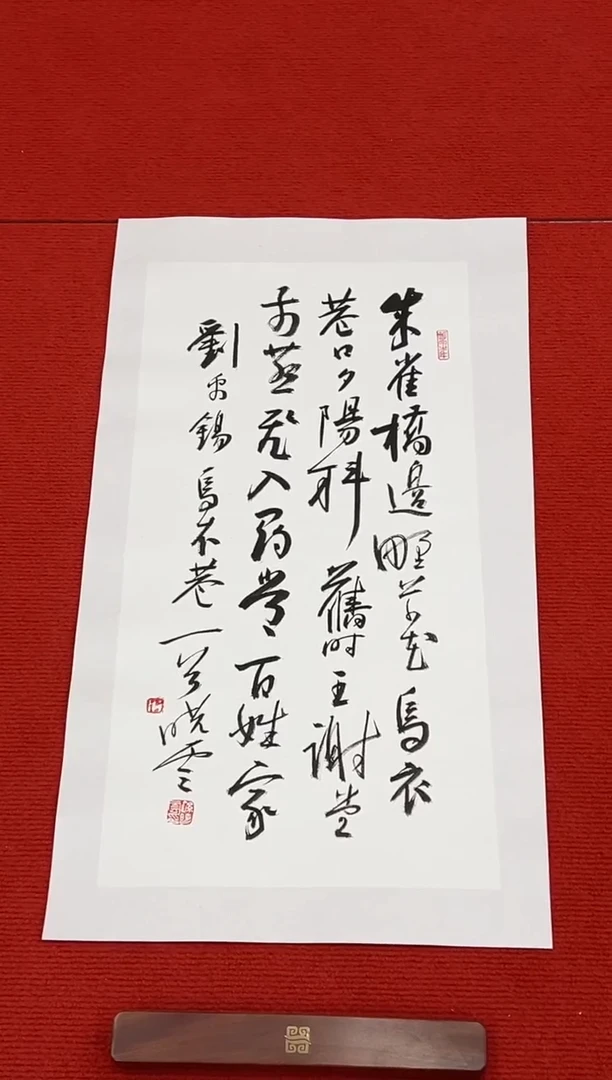 朱雀橋邊野草花烏衣
巷口夕陽斜舊时王謝堂
前燕飛入尋常百姓家
劉禹錫烏衣巷一首曉雲